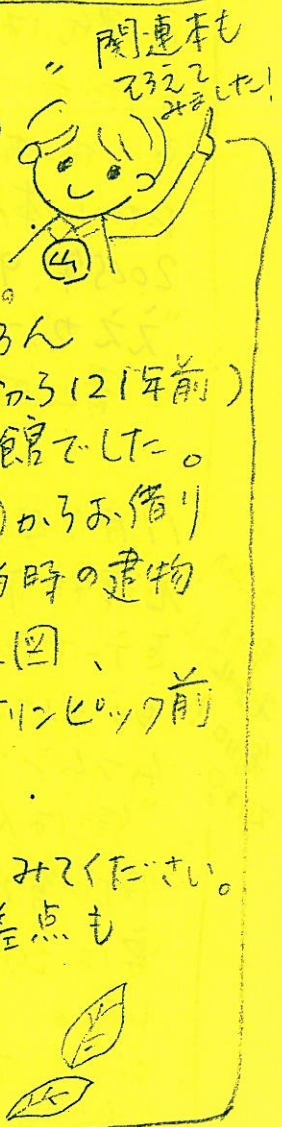 関連本も
そろえて
みました!
山
。
ろん
から121年前)
館でした。
)からお借り
当時の建物
図、
リンピック前
.
みてください。
差点も